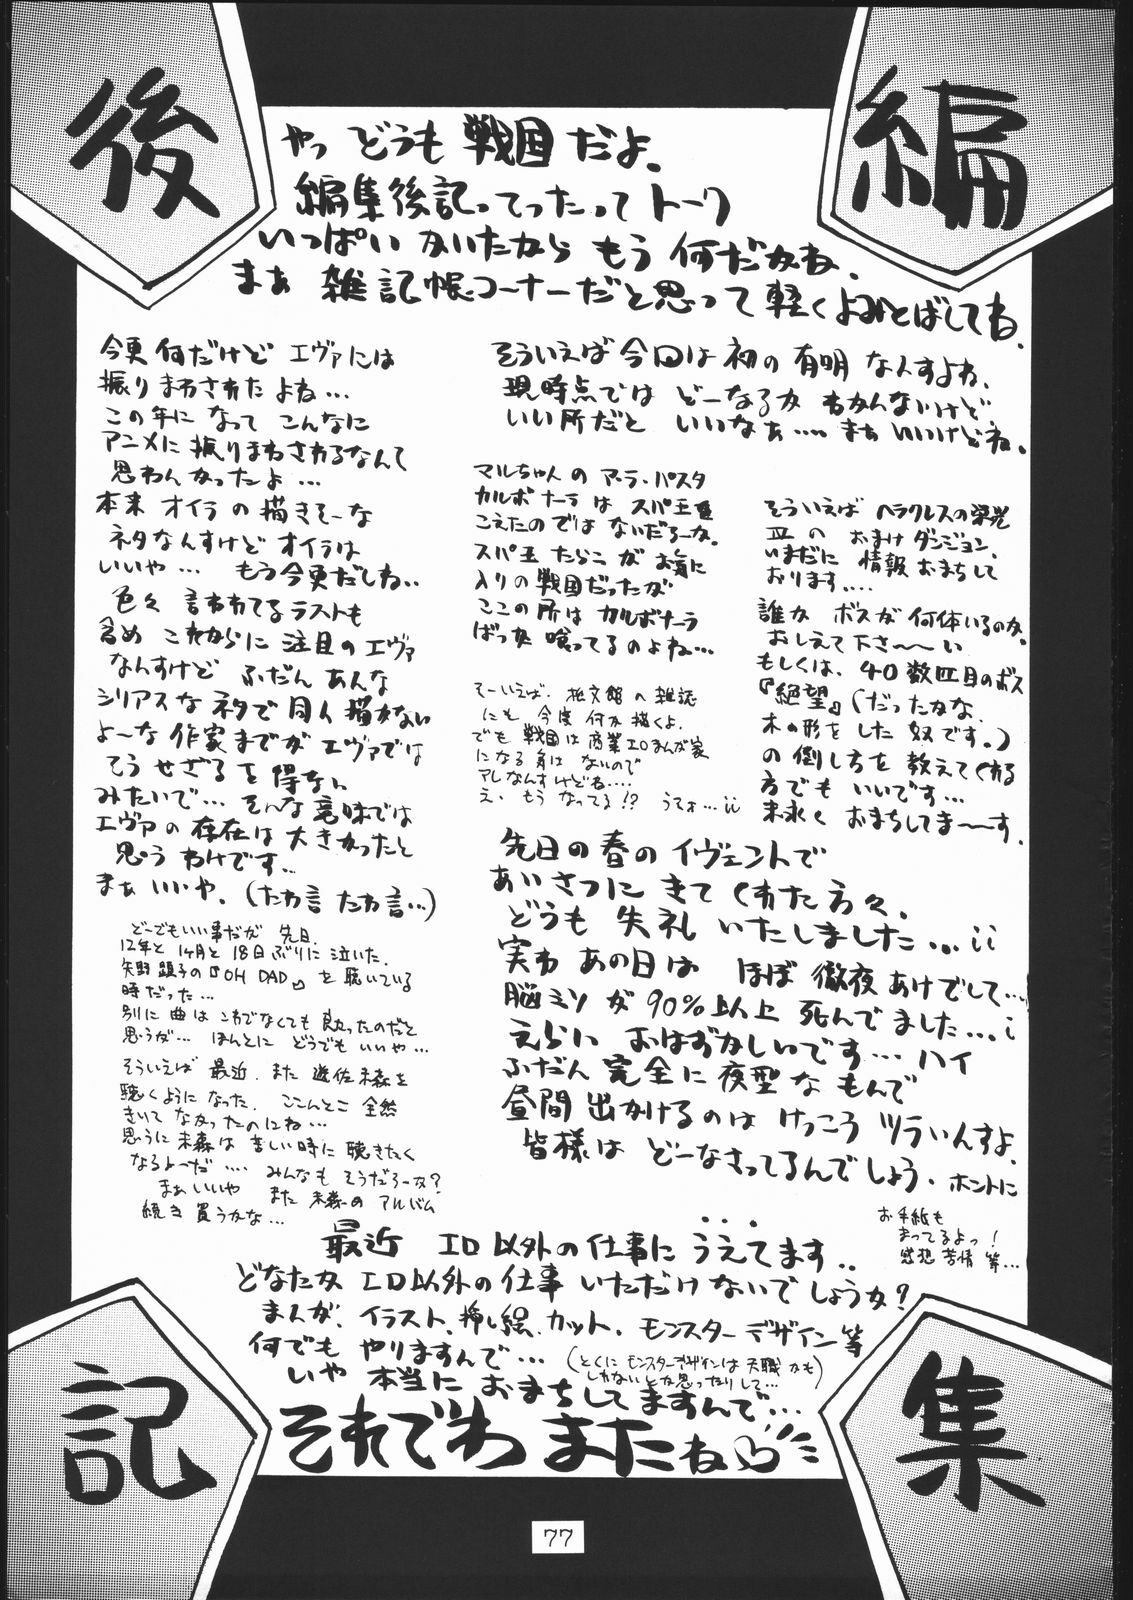 編集後記
やっ どうも 戦国 だよ.
編集後記ってったって トーク
いっぱい かいたから もう 何だかね.
まぁ 雑記帳コーナーだと思って 軽く よみとばしてね.
そういえば 今回は 初の 有明 なんすよね.
現時点では どーなるか わかんないけど
いい所だと いいなぁ.... まぁ いいけどね.
今更 何だけど エヴァには
振りまわされたよね...
この年に なって こんなに
アニメに 振りまわされるなんて
思わんかったよ...
本来 オイラ の 描きそーな
ネタなんすけど オイラは
いいや... もう今更だしね..
色々 言われてるラストも
含め これからに 注目の エヴァ
なんすけど ふだん あんな
シリアスな ネタで 同人 描かない
よ〜な 作家までが エヴァでは
そう せざるを 得ない
みたいで... そんな 意味では
エヴァの 存在は 大きかったと
思う わけです...
まぁ いいや. (たわ言 たわ言...)
どーでもいい事だが 先日.
12年と 1ヶ月と 18日ぶりに 泣いた.
矢野 顕子の『OH DAD』を 聴いている
時だった...
別に 曲は これでなくても 良かったのだと
思うが... ほんとに どうでも いいや...
そういえば 最近. また 遊佐未森を
聴くように なった. ここんとこ 全然
きいて なかったのにね...
思うに 未森は 苦しい時に 聴きたく
なるよ〜だ .... みんなも そうだろーか?
まぁ いいや また 未森の アルバム
続き 買うかな...
マルちゃん の ア・ラ・パスタ
カルボナーラ は スパ王を
こえたの では ないだろーか.
スパ王 たらこ が お気に
入りの 戦国だったが
ここの 所は カルボナーラ
ばっか 喰ってるのよね...
そーいえば. 桃文館 の 雑誌
にも 今度 何か 描くよ.
でも 戦国 は 商業エロまんが家
になる 身は ないので
アレなんすけどね....
え. もう なってる!? うてォ...ii
そういえば ヘラクレスの栄光
Ⅲの おまけ ダンジョン.
いまだに 情報 おまちして
おります....
誰か ボスが 何体いるのか.
おしえて 下さ〜〜い
もしくは、40数匹目のボス
『絶望』(だったかな.
木の形を した 奴です.)
の 倒し方を 教えてくれる
方でも いいです...
末永く おまちしてま〜〜す.
先日の 春の イヴェントで
あいさつに きて くれた 方々.
どうも 失礼 いたしました...ii
実わ あの日は ほぼ 徹夜 あけでして...
脳ミソが 90%以上 死んでました...i
えらい おはずかしいです... ハイ
ふだん 完全に 夜型な もんで
昼間 出かけるのは けっこう ツラいんすよ.
皆様は どーなさってるんでしょう. ホントに
...
お手紙も
まってるよっ!
感想 苦情 等...
最近 エロ以外の 仕事に うえてます..
どなたか エロ以外の 仕事 いただけないでしょうか?
まんが. イラスト. 挿し絵. カット. モンスターデザイン 等
何でも やりますんで... (とくに モンスターデザインは 天職 かも
しれない とか思ったりして...)
いや 本当に おまちしてますんで...
それでわ またね
77